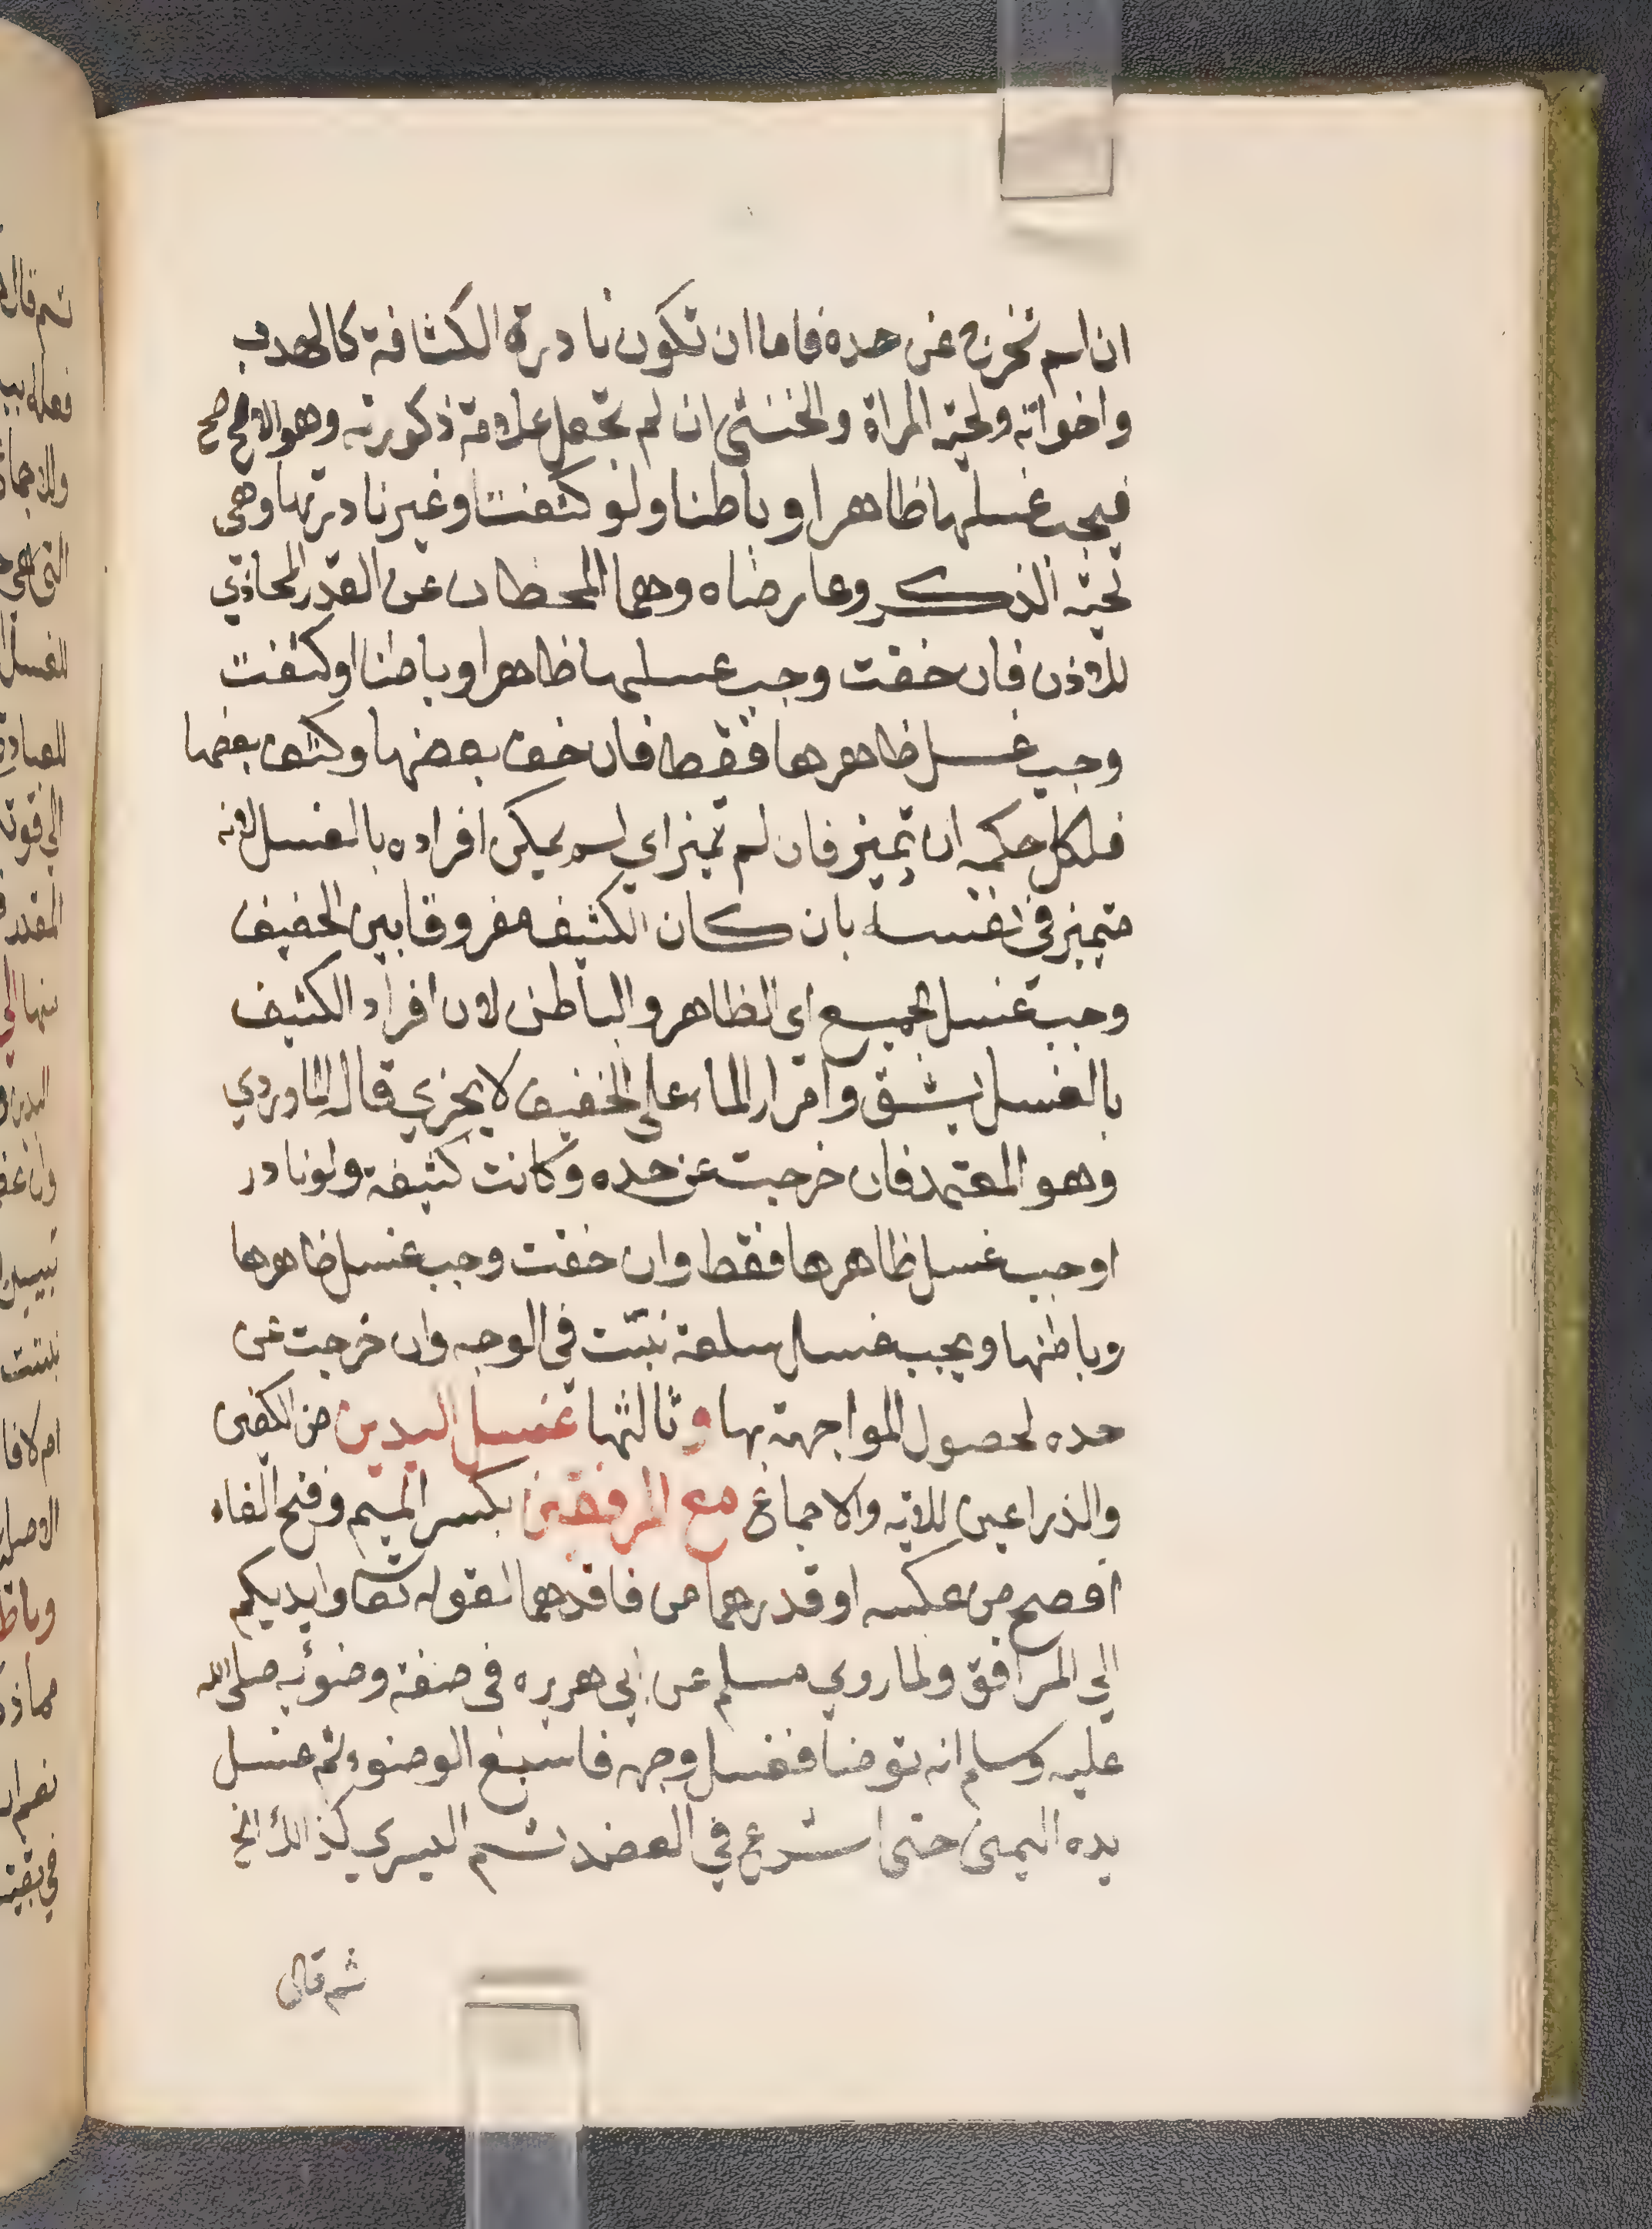 ان لم تخرج عن حده فاما ان تكون نادرة الكثافة كالهدب
واخواته ولحية المراة والخنثى ان لم نجعل علامة ذكورته وهو الاصح
فيجب غسلها ظاهرا وباطنا ولو كثفت او غير نادرتها وهي
لحية الذكر وعارضاه وهما المنحطان عن القدر المحاذي
للاذن فان خفت وجب غسلها ظاهرا وباطنا او كثفت
وجب غسل ظاهرها فقط فان خف بعضها وكثف بعضها
فلكل حكمه ان تميز فان لم تميز اي لم يمكن افراده بالغسل لانه
متميز في نفسه بان كان الكثيف مفروقا بين الخفيف
وجب غسل الجميع اي الظاهر والباطن لان افراد الكثيف
بالغسل يشق وامرار الماء على الخفيف لا يجزي قاله الماوردي
وهو المعتمد فان خرجت عن حده وكانت كثيفة ولو نادر
ا وجب غسل ظاهرها فقط وان خفت وجب غسل ظاهرها
وباطنها ويجب غسل سلعة نبتت في الوجه وان خرجت عن
حده لحصول المواجهة بها وثالثها غسل اليدين من الكفين
والذراعين للاية والاجماع مع المرفقين بكسر الميم وفتح الفاء
افصح من عكسه او قدرهما من فاقدهما لقوله تعا وايديكم
الي المرافق ولما روي مسلم عن ابي هريره في صفة وضوئه صلى الله
عليه وسلم انه توضا فغسل وجهه فاسبغ الوضوء ثم غسل
يده اليمنى حتى اشرع في العضد ثم اليسري كذالك الخ
ثم قال